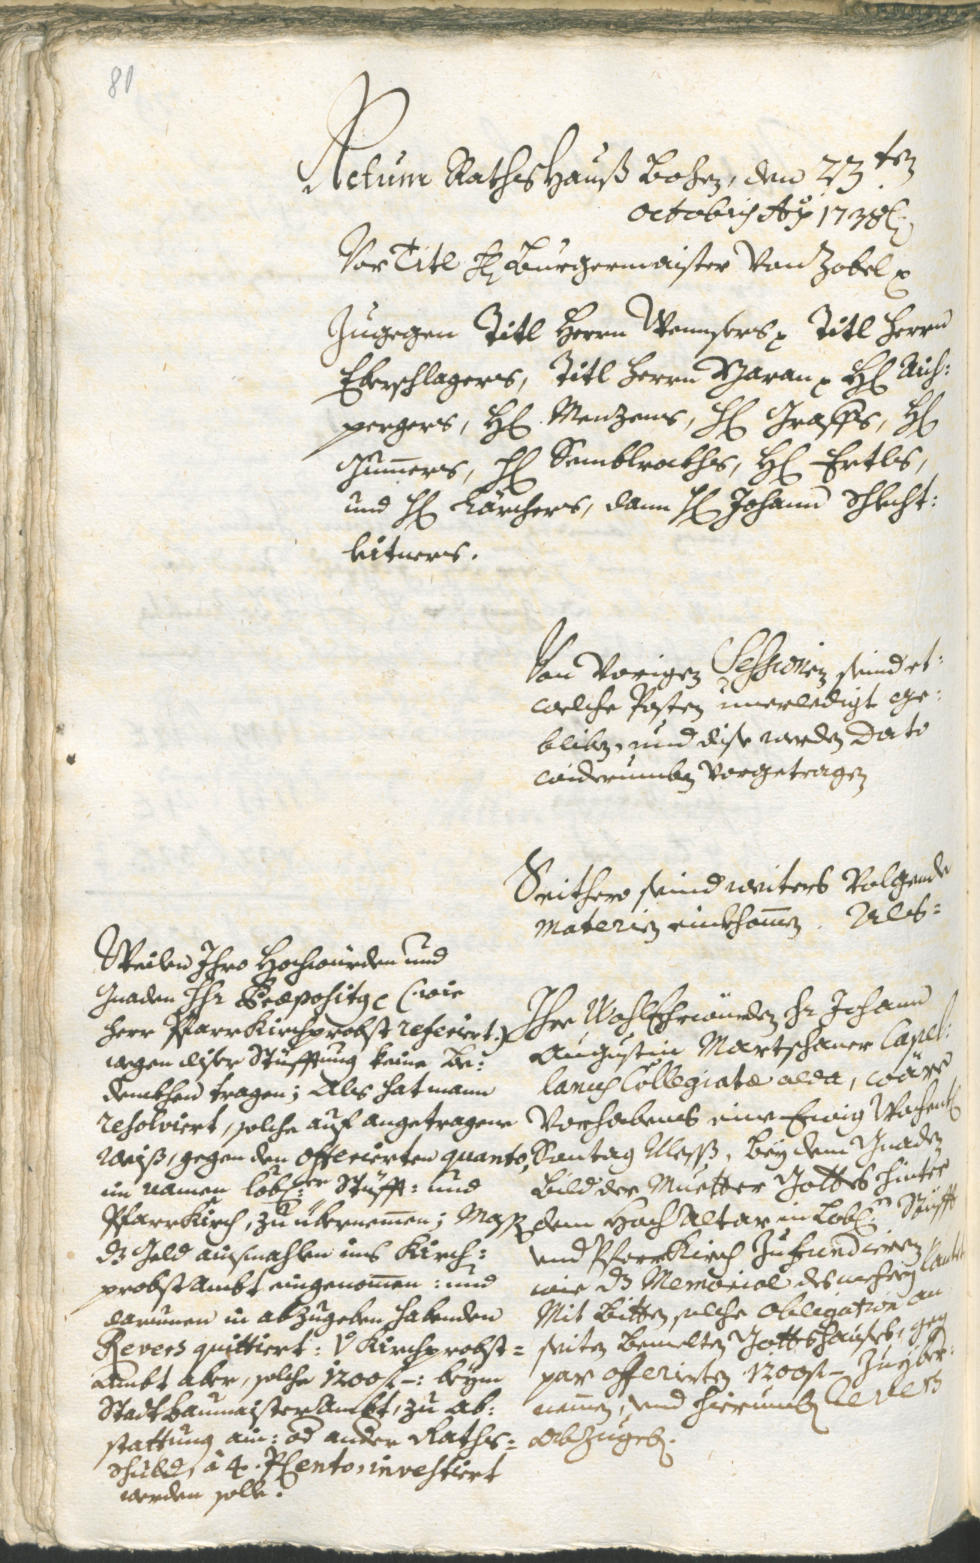 80
Actum Rathshauß Bozen, den 23ten
octobris Ao 1738
Vor Titl H: Burgermaister Von Zobel
Zugegen Titl Herrn Wennsers, Titl Herrn
Eberschlagers, Titl Herrn Maran, H: Aich:
pergers, H: Menzens, H: Graffs, H:
Gumers, H: Semblrochs, H: Ertls,
und H: Kärchers, dann H: Johann Schlecht:
leitners.
Von Vorigen Sessionen seind et:
welche Posten unerledigt ge:
bliben, und dise werden Dato
widerumben Vorgetragen
Seithero seind weiters Volgende
materien einkhomen. Als=
Ihr WohlEhrwürden Hr: Johann
Augustin Martschaner Capel:
lanus Collegiatæ alda, wäre
Vorhabens eine Ewig Wochentl:
Sontag Mess, bey dem Gnaden
Bild der Muetter Gottes hinter
dem Hoch Altar in Lobl: Stüfft
und PfarrKirch Zu fundieren
wie dz Memorial des mehrern
Mit Bitten, solche obligation an
seiten bemelten Gottshauses, gegen
par offerierten 1200 f – Zu yber:
nemen, und hierumben Revers
abzugeben.
Weilen Ihro Hochwürden und
Gnaden Hr: Præpositus (: wie
Herr PfarrKirchprobst referiert :)
wegen diser Stüfftung keine Be:
denkhen tragen; Als hat mann
resolviert, solche auf angetragene
weiß, gegen den offerierten quanto,
im namen lobl:er Stüfft= und
PfarrKirch, zu übernemen; Mass
dz Geld einsmahlen ins Kirch:
probstAmbt eingenomen: und
darinnen in abzugeben habenden
Revers quittiert: Kirchprobst=
Ambt aber, solche 1200 f –: beym
StadtBaumaisterAmbt, zu ab:
stattung ain: od ander Raths=
schuld, à 4. PCento, investiert
werden solle.